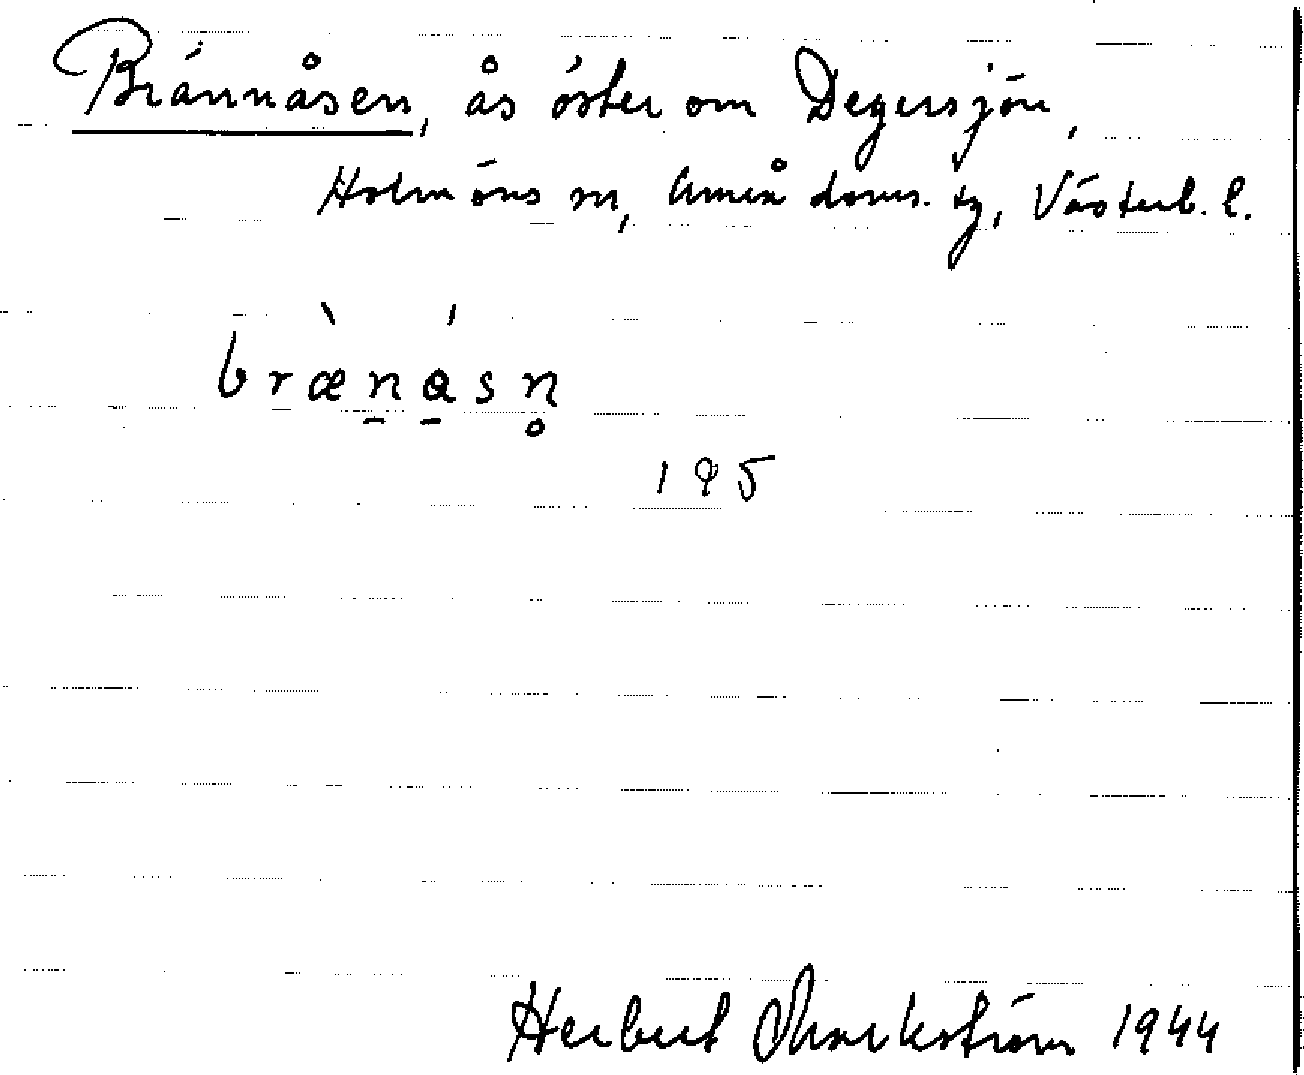 Brännåsen, ås öster om Degersjön,
Holmöns sn, Umeå doms. tg, Västerb. l.
brænåsn
195
Herbert Markström 1944